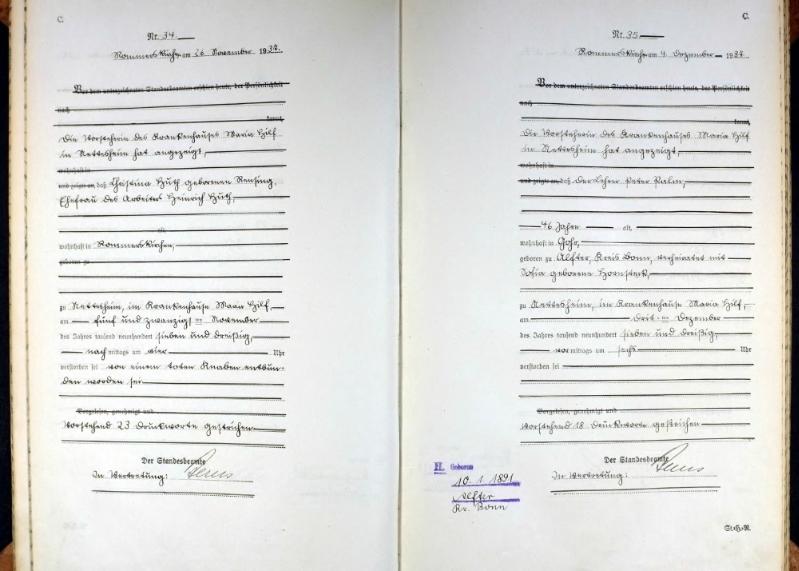 C.
Nr. 34
Rommerskirchen am 26. November 1937.
Vor dem unterzeichneten Standesbeamten erschien heute, der Persönlichkeit
nach
kannt,
Die Vorsteherin des Krankenhauses Maria Hilf
in Nettesheim hat angezeigt,
wohnhaft in
und zeigte an, daß Christina Huth geborenen Rensing,
Ehefrau des Arbeiters Heinrich Huth,
alt,
wohnhaft in Rommerskirchen,
geboren zu
zu Nettesheim, im Krankenhause Maria Hilf,
am fünf und zwanzigst ten November
des Jahres tausend neunhundert sieben und dreißig,
nach mittags um vier Uhr
verstorben sei von einem toten Knaben entbun-
den worden sei
Vorgelesen, genehmigt und
Vorstehend 23 Druckworte gestrichen
Der Standesbeamte
In Vertretung:
C.
Nr. 35
Rommerskirchen am 4. Dezember 1937.
Vor dem unterzeichneten Standesbeamten erschien heute, der Persönlichkeit
nach
kannt,
Die Vorsteherin des Krankenhauses Maria Hilf
in Nettesheim hat angezeigt,
wohnhaft in
und zeigte an, daß der Lehrer Peter Palm,
46 Jahren alt,
wohnhaft in Gohr,
geboren zu Alfter, Kreis Bonn, verheiratet mit
Sofia geborene
zu Nettesheim, im Krankenhause Maria Hilf,
am drit ten Dezember
des Jahres tausend neunhundert sieben und dreißig,
vor mittags um sechs Uhr
verstorben sei
Vorgelesen, genehmigt und
Vorstehend 18 Druckworte gestrichen
Der Standesbeamte
In Vertretung:
H. Geboren
10. 1. 1891
Alfter
Kr. Bonn
St.H.R.